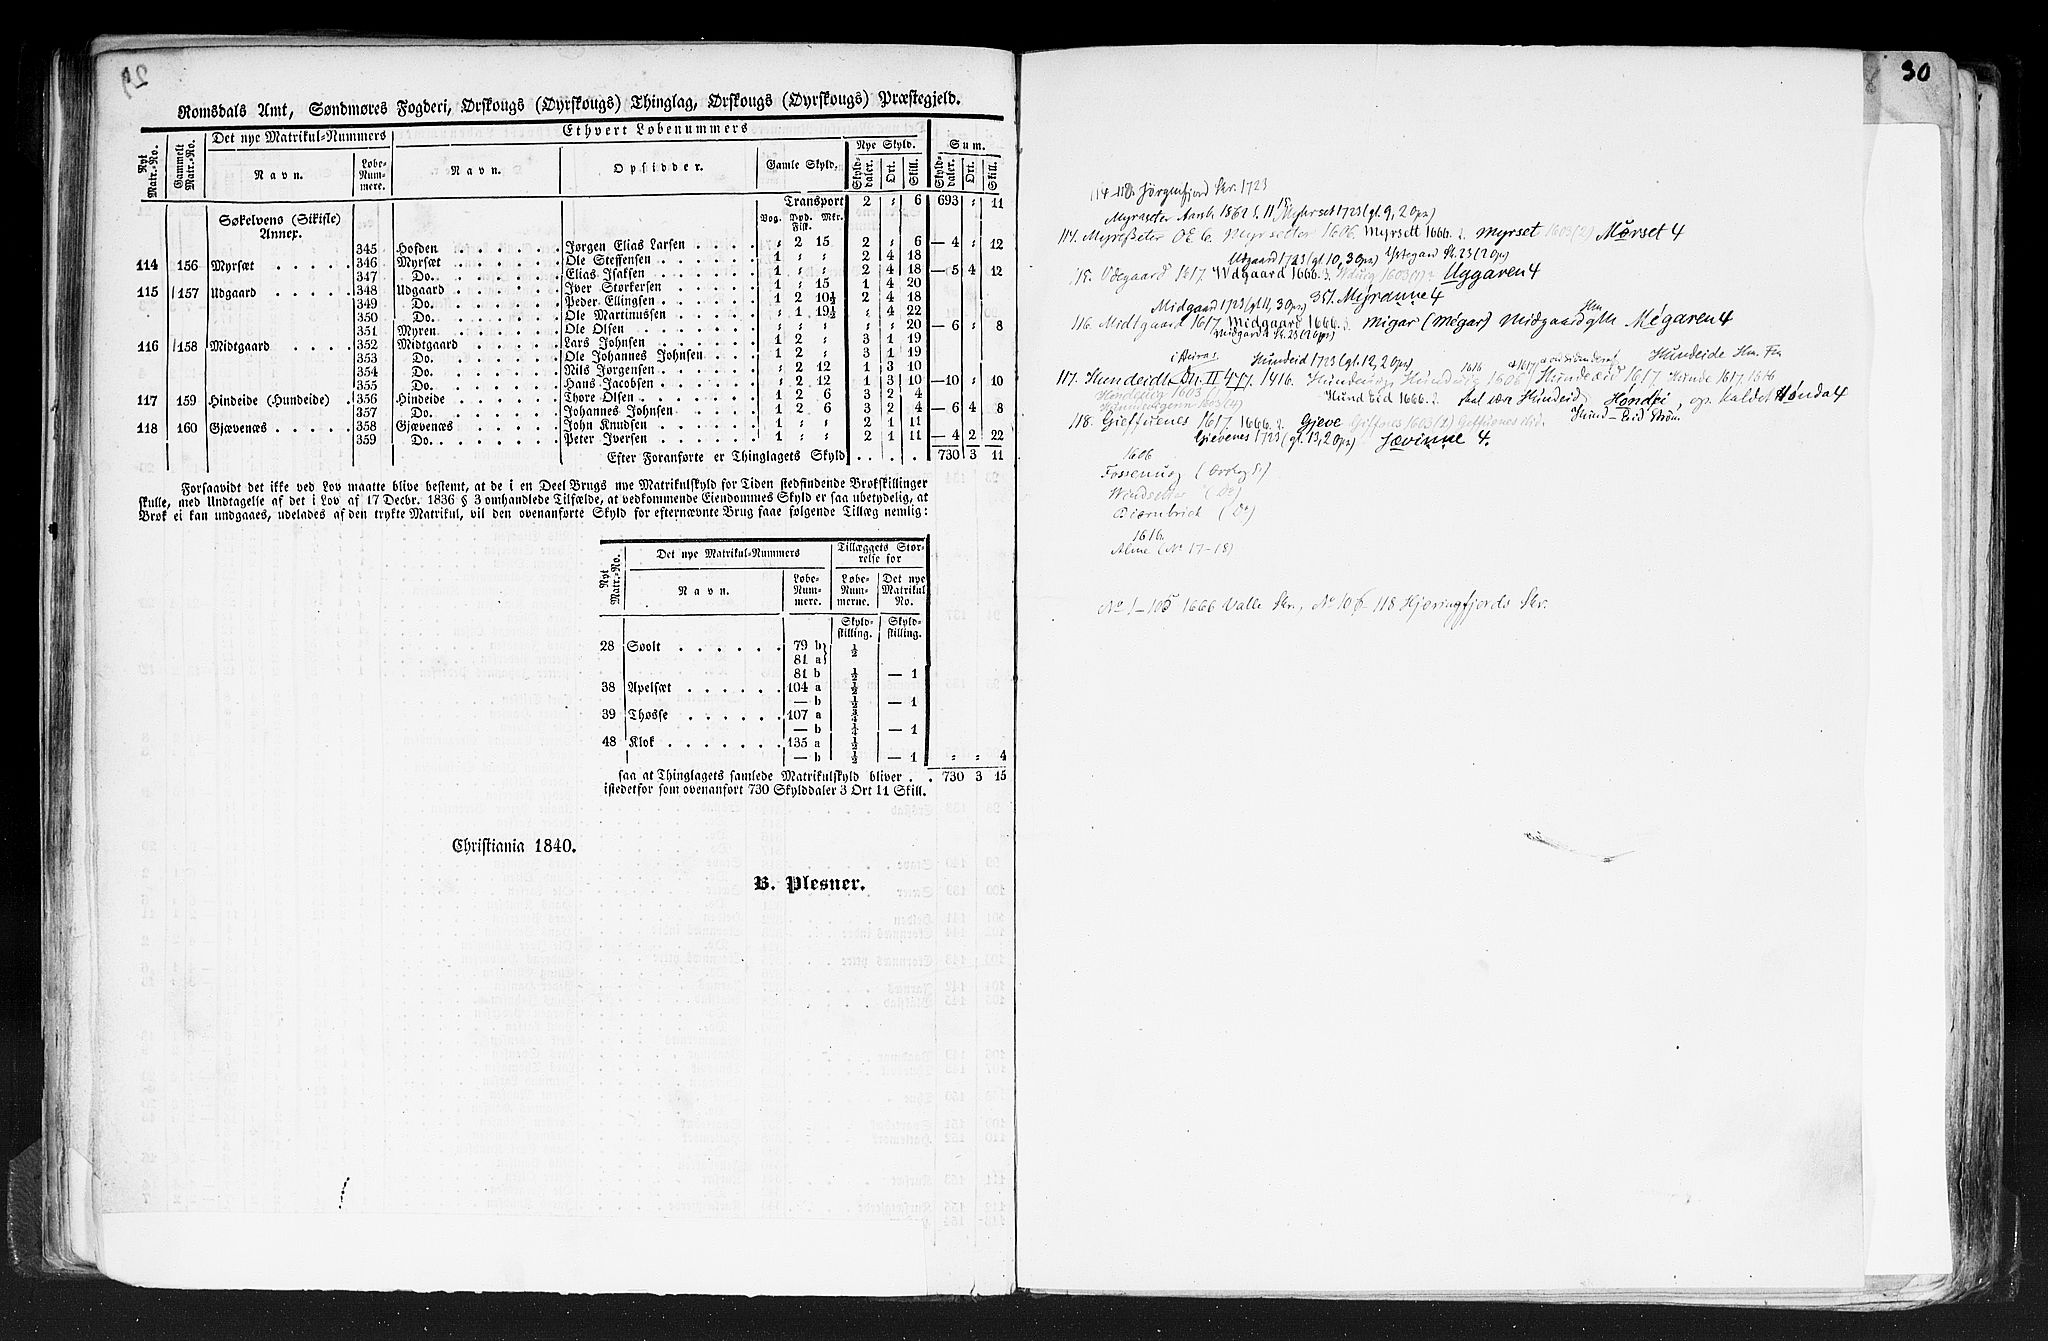 29
Romsdals Amt, Søndmøres Fogderi, Ørskougs (Øyrskougs) Thinglag, Ørskougs (Øyrskougs) Præstegjeld.
Nyt Matr.-No. Gammelt Matr.-No. Det nye Matrikul-Nummers Ethvert Løbenummers
Navn. Løbe-Num-mere. Navn. Opsidder. Gamle Skyld. Nye Skyld. Sum.
Skyld-daler. Ort. Skill. Skyld-daler. Ort. Skill.
Transport 2 " 6 693 " 11
Søkelvens (Sikifle) Annex. Vog. Bpd. Fisk. Mkr.
345 Hofden Jørgen Elias Larsen " 2 15 2 " 6 — 4 " 12
114 156 Myrsæt 346 Myrsæt Ole Steffensen 1 " " 2 4 18
347 Do. Elias Isaksen 1 " " 2 4 18 — 5 4 12
115 157 Udgaard 348 Udgaard Iver Storkersen 1 " 15 1 4 20
349 Do. Peder Ellingsen 1 2 10½ 2 4 18
350 Do. Ole Martinussen " 1 19½ " 4 22
351 Myren Ole Olsen " " 20 — 6 " 8
116 158 Midtgaard 352 Midtgaard Lars Johnsen 1 2 " 3 1 19
353 Do. Ole Johannes Johnsen 1 2 " 3 1 19
354 Do. Nils Jørgensen " 2 12 1 3 10
355 Do. Hans Jacobsen " 2 12 1 3 10 — 10 " 10
117 159 Hindeide (Hundeide) 356 Hindeide Thore Olsen 1 2 6 3 2 4
357 Do. Johannes Johnsen 1 2 6 3 2 4 — 6 4 8
118 160 Gjævenæs 358 Gjævenæs John Knudsen 1 " " 2 1 11
359 Do. Peter Iversen 1 " " 2 1 11 — 4 2 22
Efter Foranførte er Thinglagets Skyld . . . 730 3 11
Forsaavidt det ikke ved Lov maatte blive bestemt, at de i en Deel Brugs nye Matrikulskyld for Tiden stedfindende Brøkskillinger
skulle, med Undtagelse af det i Lov af 17 Decbr. 1836 § 3 omhandlede Tilfælde, at vedkommende Eiendommes Skyld er saa ubetydelig, at
Brøk ei kan undgaaes, udelades af den trykte Matrikul, vil den ovenanførte Skyld for efternævnte Brug faae følgende Tillæg nemlig:
Nyt Matr.-No. Det nye Matrikul-Nummers Tillæggets Størrelse for
Navn. Løbe-Num-mere. Løbe-Num-merne. Det nye Matrikul No.
Skyld-skilling. Skyld-skilling.
28 Søolt 79 b} ½
81 a}
81 b ½ — 1
38 Apelsæt 104 a ½
— b ½ — 1
39 Thosse 107 a ¾
— b ¼ — 1
48 Klok 135 a ½
— b ½ — 1 " " 4
saa at Thinglagets samlede Matrikulskyld bliver . . 730 3 15
istedetfor som ovenanført 730 Skylddaler 3 Ort 11 Skill.
Christiania 1840.
B. Plesner.
30
114-118 Jørgenfjord Skr. 1723
Myrsæter Aarsb. 1862 S. 11. Myhrset 1723 (gl. 9, 2 op)
114. Myreßeter OE. 6. Myrsetter 1606. Myrsett 1666. 2. Myrset 1603 (2) Mørset 4
Udgaard 1723 (gl. 10, 3 op)
115. Udegaard 1617. Wdgaard 1666. 3. Uggaren 4
Midgaard 1723 (gl. 11, 3 op) 351. Myranne 4
116. Midtgaard 1617. Midgaard 1666. 3. Migar (Mégar) Midgaard Mégaren 4
Hundeid 1723 (gl. 12, 2 op) Hundeide
117. Hundeidt Dn. II 477. 1416. Hundeid 1617 Hunde 1617. 1606
Hund Eid 1666. 2. Hundeid, Hondei, op. kaldet Hønda 4
118. Gieffuenes 1617. 1666. 2. Gjeve 1603 (2) Geffuenes
Gievenes 1723 (gl. 13, 2 op) Jævinne 4.
1606
Fossemug
Windsetter (Do)
Biørnbrich (Do)
1616.
Alme (No 17-18)
No 1-105 1666 Valle Skr., No 106-118 Hjøringfjords Skr.